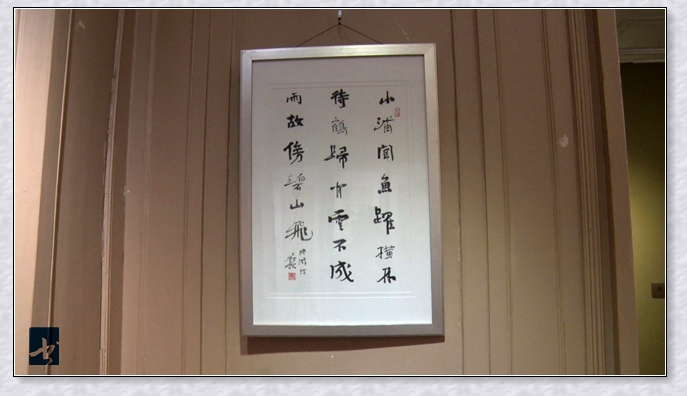 小浦闻鱼跃横林
待鹤归闲云不成
雨故傍碧山飞